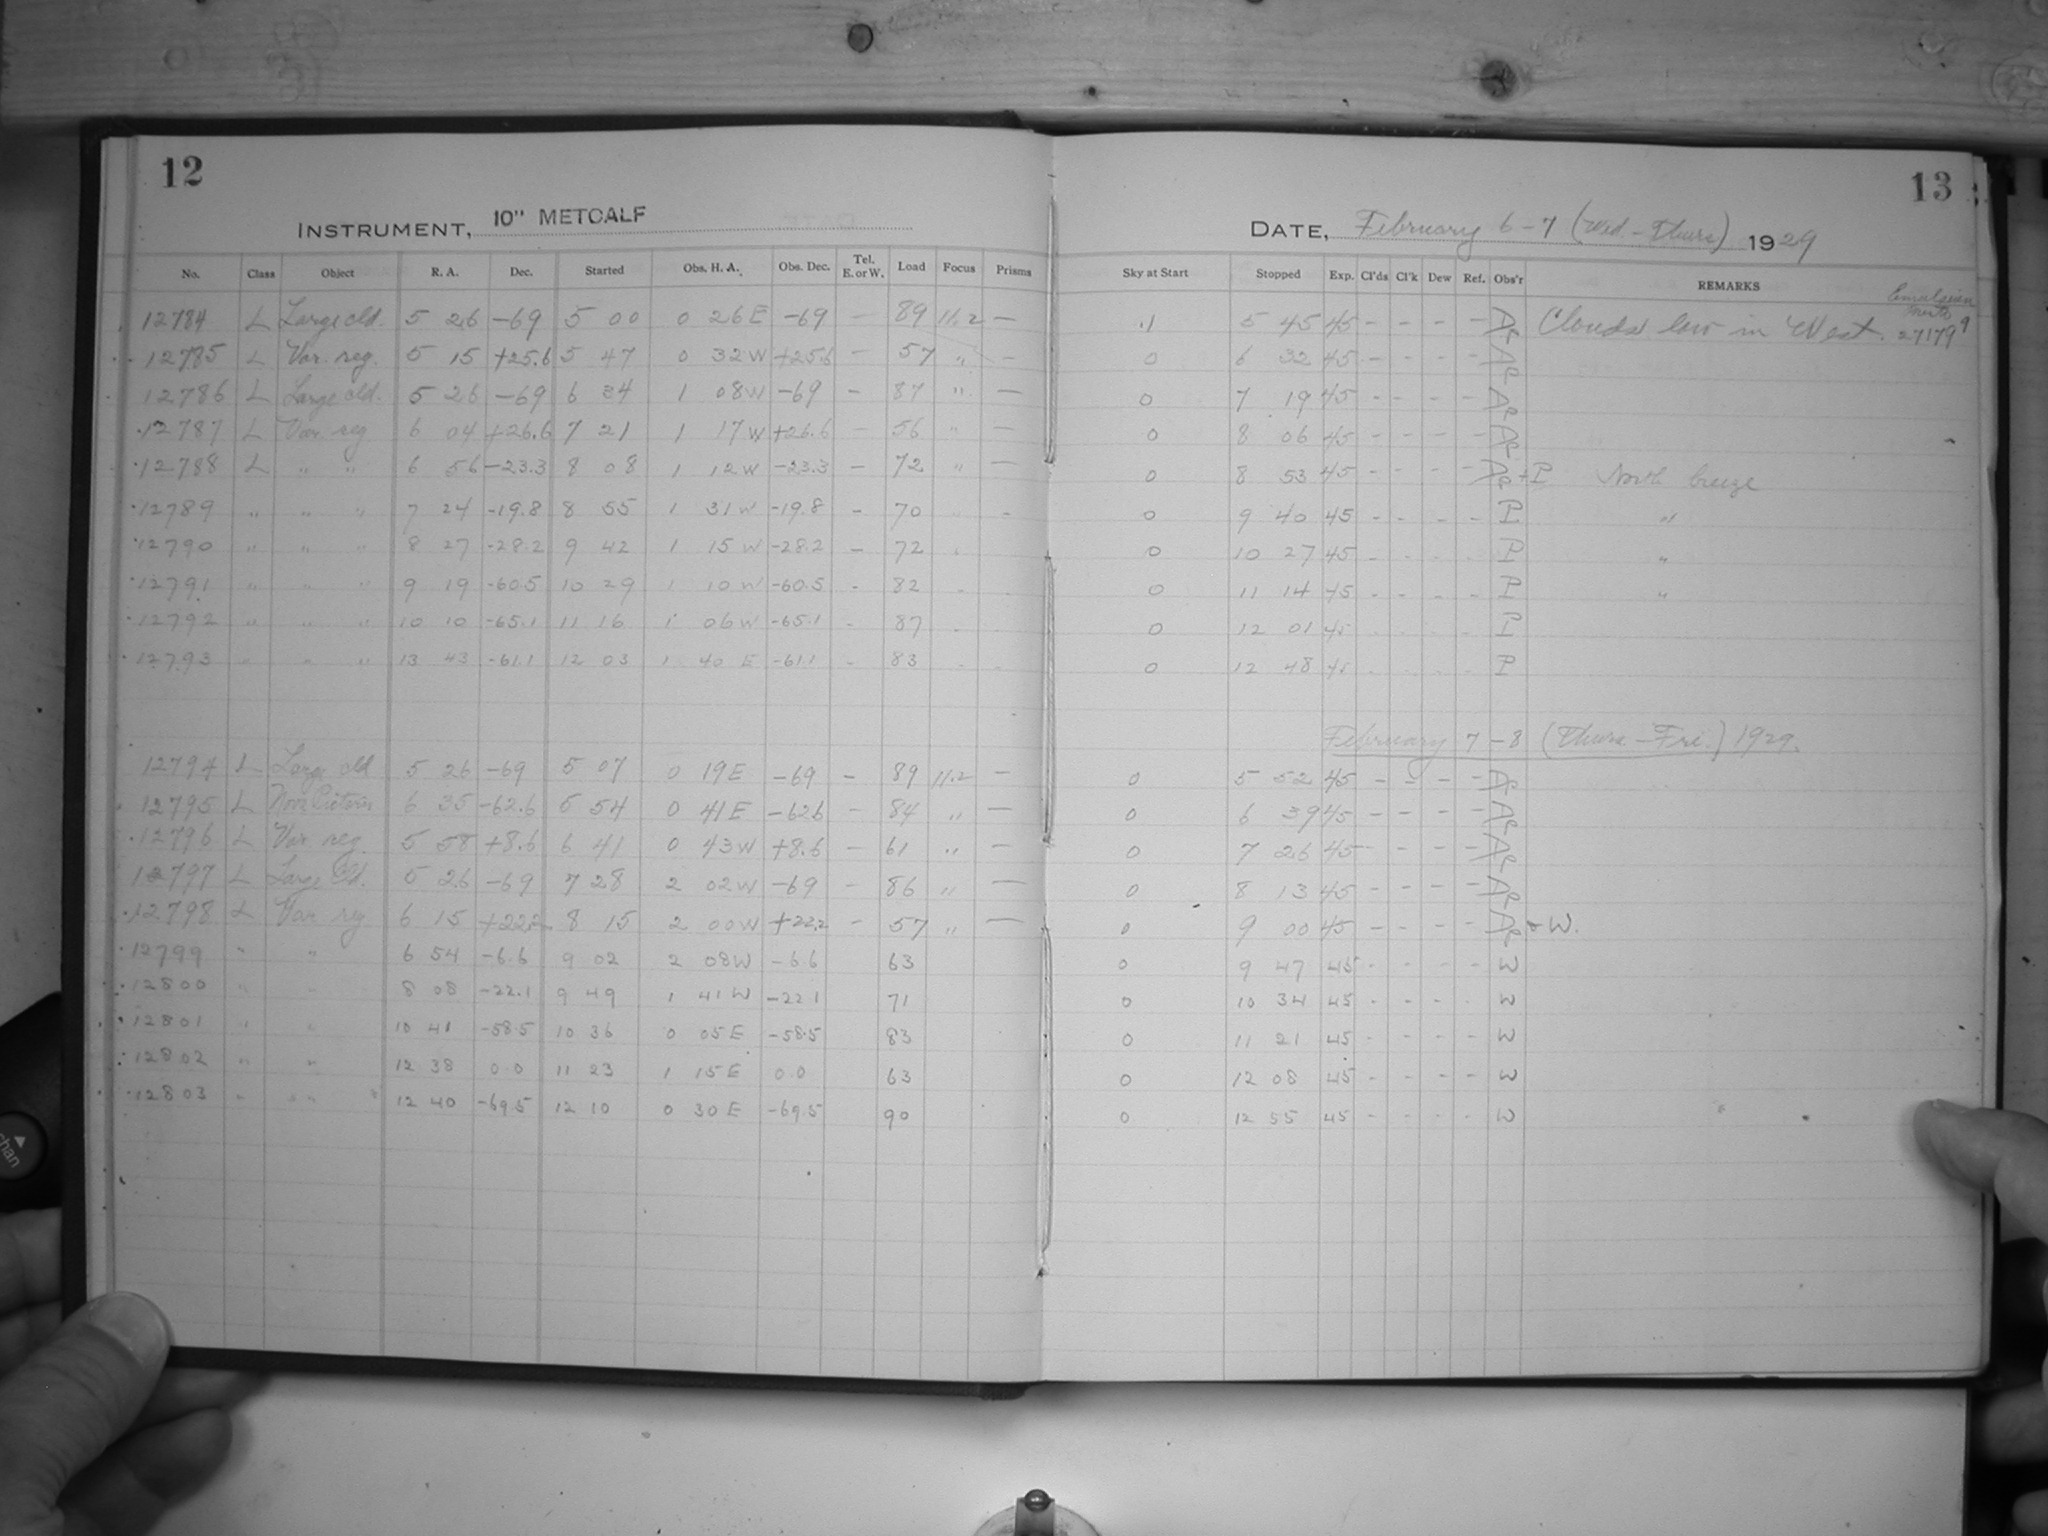 12
INSTRUMENT, 10" METCALF
No. Class Object R. A. Dec. Started Obs. H. A. Obs. Dec. Tel. E. or W. Load Focus Prisms
12784 L Large cld. 5 26 -69 5 00 0 26 E -69 - 89 11.2 -
12785 L Var. reg. 5 15 +25.6 5 47 0 32 W +25.6 - 57 " -
12786 L Large cld. 5 26 -69 6 34 1 08 W -69 - 87 " -
12787 L Var. reg 6 04 +26.6 7 21 1 17 W +26.6 - 56 " -
12788 L " " 6 56 -23.3 8 08 1 12 W -23.3 - 72 " -
12789 " " " 7 24 -19.8 8 55 1 31 W -19.8 - 70 -
12790 " " " 8 27 -28.2 9 42 1 15 W -28.2 - 72
12791 " " " 9 19 -60.5 10 29 1 10 W -60.5 - 82
12792 " " " 10 10 -65.1 11 16 1 06 W -65.1 - 87
12793 " " " 13 43 -61.1 12 03 1 40 E -61.1 - 83
12794 L Large cld 5 26 -69 5 07 0 19 E -69 - 89 11.2 -
12795 L Nova Pictoris 6 35 -62.6 5 54 0 41 E -62.6 - 84 " -
12796 L Var. reg. 5 58 +8.6 6 41 0 43 W +8.6 - 61 " -
12797 L Large Cld. 5 26 -69 7 28 2 02 W -69 - 86 " -
12798 L Var. reg 6 15 +22.2 8 15 2 00 W +22.2 - 57 " -
12799 " " 6 54 -6.6 9 02 2 08 W -6.6 63
12800 " " 8 08 -22.1 9 49 1 41 W -22.1 71
12801 " " 10 41 -58.5 10 36 0 05 E -58.5 83
12802 " " 12 38 0.0 11 23 1 15 E 0.0 63
12803 " " " 12 40 -69.5 12 10 0 30 E -69.5 90
13
DATE, February 6-7 (Wed-Thurs) 1929
Sky at Start Stopped Exp. Cl'ds Cl'k Dew Ref. Obs'r REMARKS
Emulsion
.1 5 45 45 - - - - Clouds low in West. 27179
0 6 32 45 - - - -
0 7 19 45 - - - -
0 8 06 45 - - - -
0 8 53 45 - - - - + P North breeze
0 9 40 45 - - - - P "
0 10 27 45 - - - - P "
0 11 14 45 - - - - P "
0 12 01 45 P
0 12 48 45 P
February 7-8 (Thurs-Fri.) 1929.
0 5 52 45 - - - -
0 6 39 45 - - - -
0 7 26 45 - - - -
0 8 13 45 - - - -
0 9 00 45 - - - - & W.
0 9 47 45 - - - - W
0 10 34 45 - - - - W
0 11 21 45 - - - - W
0 12 08 45 - - - - W
0 12 55 45 - - - - W
chan